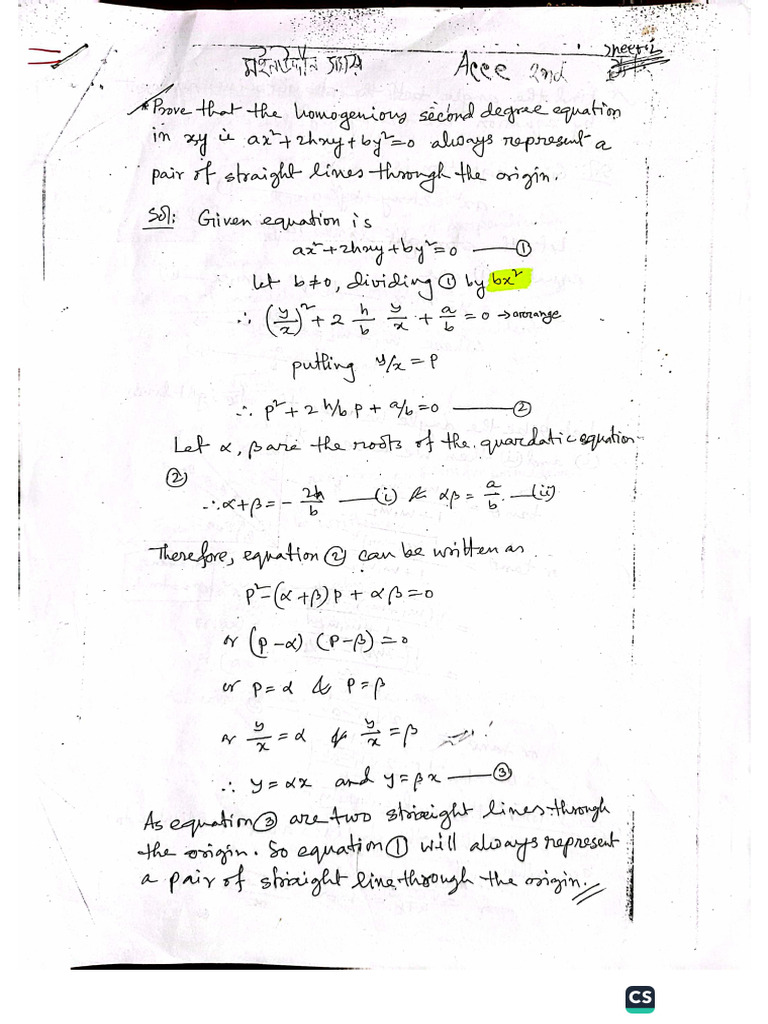 Acce 2nd
*Prove that the homogenious second degree equation
in xy ie ax²+2hxy+by²=0 always represent a
pair of straight lines through the origin.
Sol: Given equation is
ax²+2hxy+by²=0 —— ①
let b≠0, dividing ① by bx²
∴ (y/x)² + 2 h/b y/x + a/b = 0 → arrange
putting y/x = P
∴ P²+2 h/b P + a/b = 0 —— ②
Let α, β are the roots of the quardatic equation
②
∴ α+β = - 2h/b —(i) & αβ = a/b —(ii)
Therefore, equation ② can be written as
P²-(α+β)P + αβ = 0
or (P-α) (P-β) = 0
or P=α & P=β
or y/x = α & y/x = β
∴ y=αx and y=βx —— ③
As equation ③ are two straight lines through
the origin. So equation ① will always represent
a pair of straight line through the origin.
CS